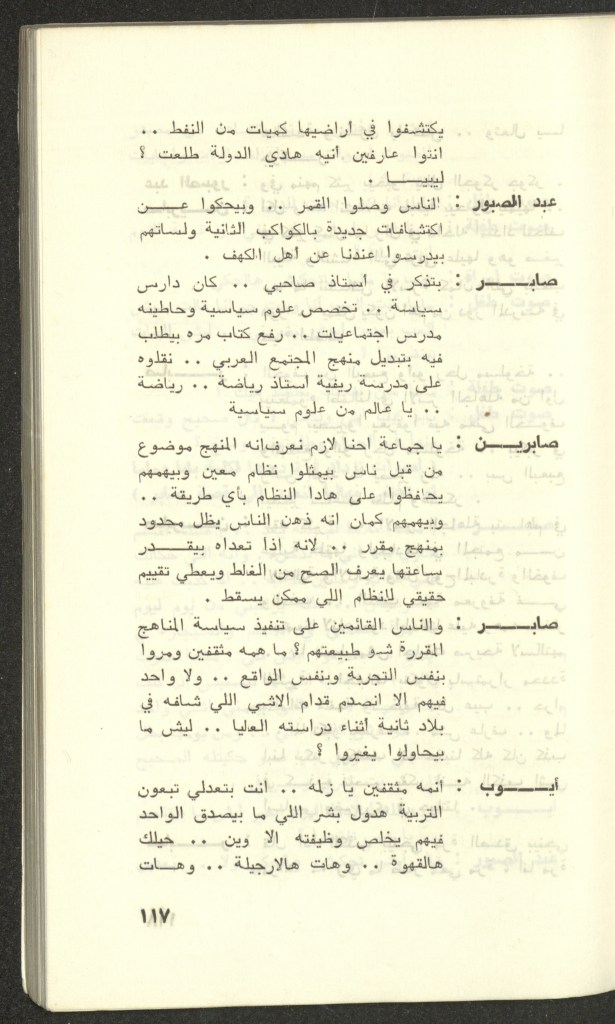 يكتشفوا في أراضيها كميات من النفط ..
انتوا عارفين أنيه هادي الدولة طلعت ؟
ليبيـــا .
عبد الصبور : الناس وصلوا القمر .. وبيحكوا عـــن
اكتشافات جديدة بالكواكب الثانية ولساتهم
بيدرسوا عندنا عن أهل الكهف .
صابـــــر : بتذكر في أستاذ صاحبي .. كان دارس
سياسة .. تخصص علوم سياسية وحاطينه
مدرس اجتماعيات .. رفع كتاب مره بيطلب
فيه بتبديل منهج المجتمع العربي .. نقلوه
على مدرسة ريفية أستاذ رياضة .. رياضة
.. يا عالم من علوم سياسية
صابريـــن : يا جماعة احنا لازم نعرف انه المنهج موضوع
من قبل ناس بيمثلوا نظام معين وبيهمهم
يحافظوا على هادا النظام بأي طريقة ..
وبيهمهم كمان انه ذهن الناس يظل محدود
بمنهج مقرر .. لانه اذا تعداه بيقـــدر
ساعتها يعرف الصح من الغلط ويعطي تقييم
حقيقي لانظام اللي ممكن يسقط .
صابـــــر : والناس القائمين على تنفيذ سياسة المناهج
المقررة شو طبيعتهم ؟ ما همه مثقفين ومروا
بنفس التجربة وبنفس الواقع .. ولا واحد
فيهم الا انصدم قدام الاشي اللي شافه في
بلاد ثانية أثناء دراسته العاليا .. ليش ما
بيحاولوا يغيروا ؟
أيـــــوب : انمه مثقفين يا زلمه .. انت بتعدلي تبعون
التربية هدول بشر اللي ما بيصدق الواحد
فيهم يخلص وظيفته الا وين .. حيلك
هالقهوة .. وهات هالارجيلة .. وهـــات
١١٧